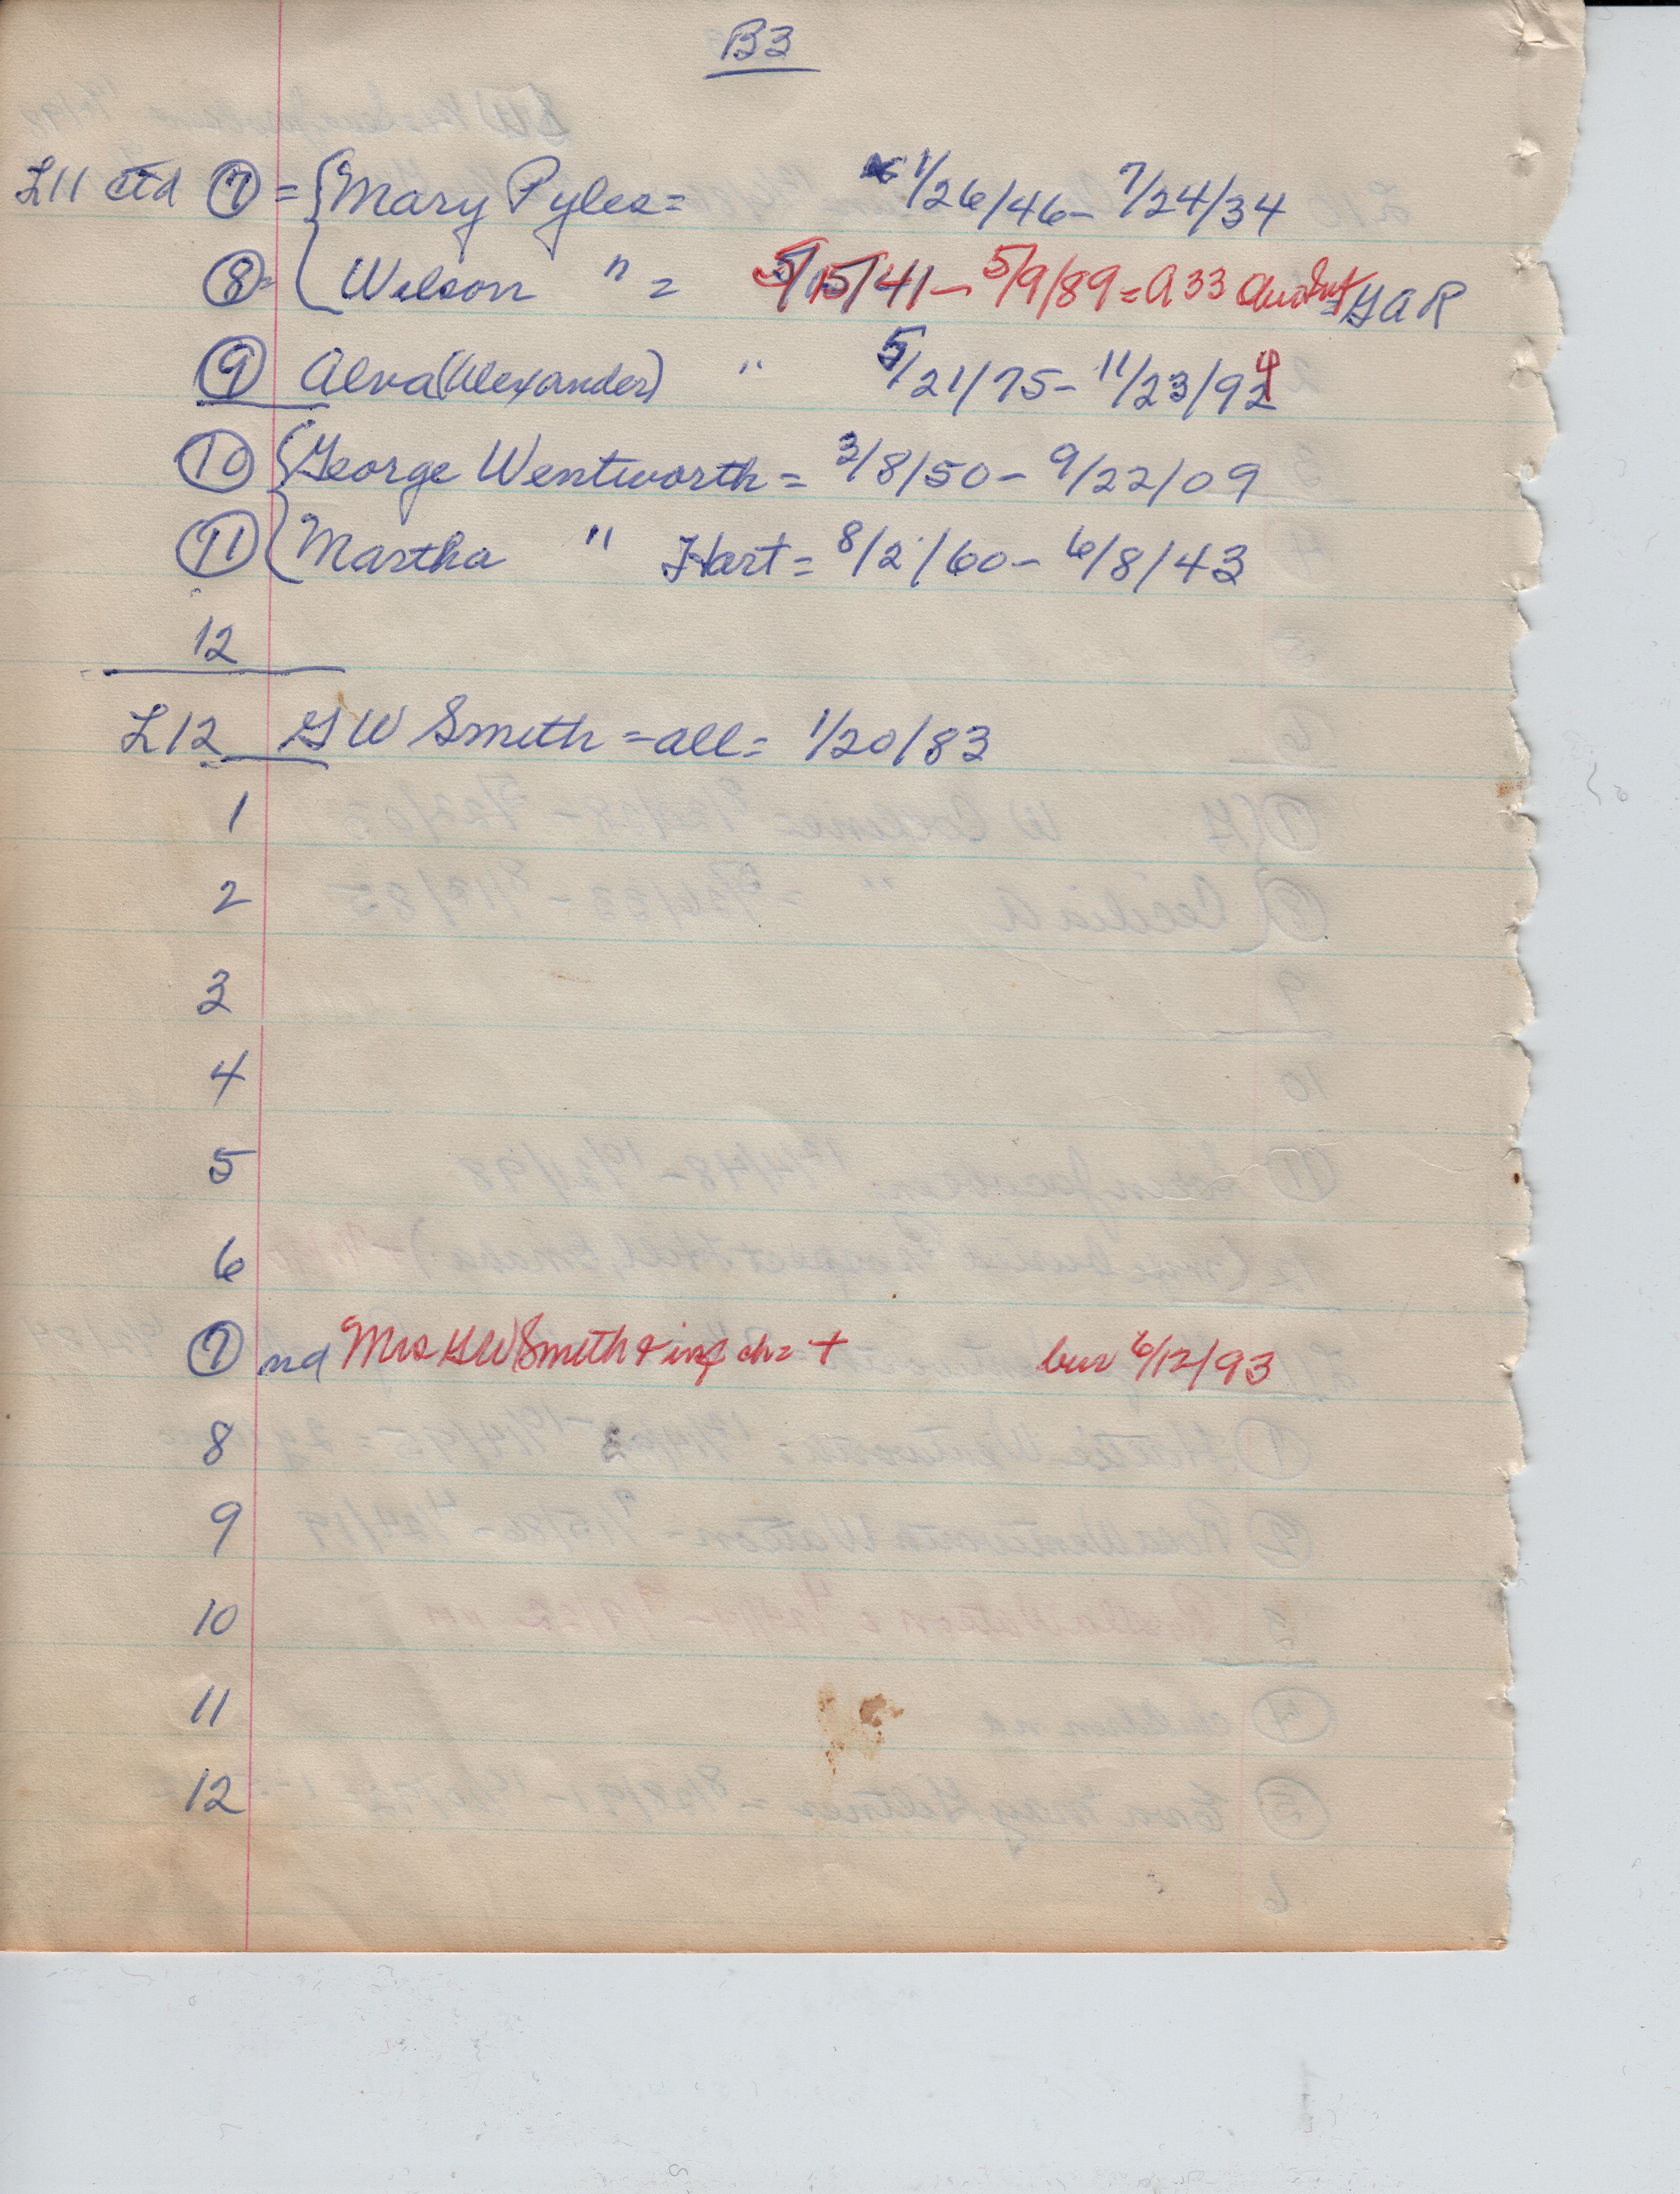 B3
L11 ctd ⑦ = { Mary Pyles = 1/26/46 - 7/24/34
⑧ = { Wilson " = 5/15/41 - 5/9/89 = A 33 Inf = GAR
⑨ Alva (Alexander) " 5/21/75 - 11/23/94
⑩ { George Wentworth = 3/8/50 - 9/22/09
⑪ { Martha " Hart = 8/2/60 - 6/8/43
12
L12 GW Smith = all = 1/20/83
1
2
3
4
5
6
⑦ nd Mrs GW Smith & inf ch = + bur 6/12/93
8
9
10
11
12